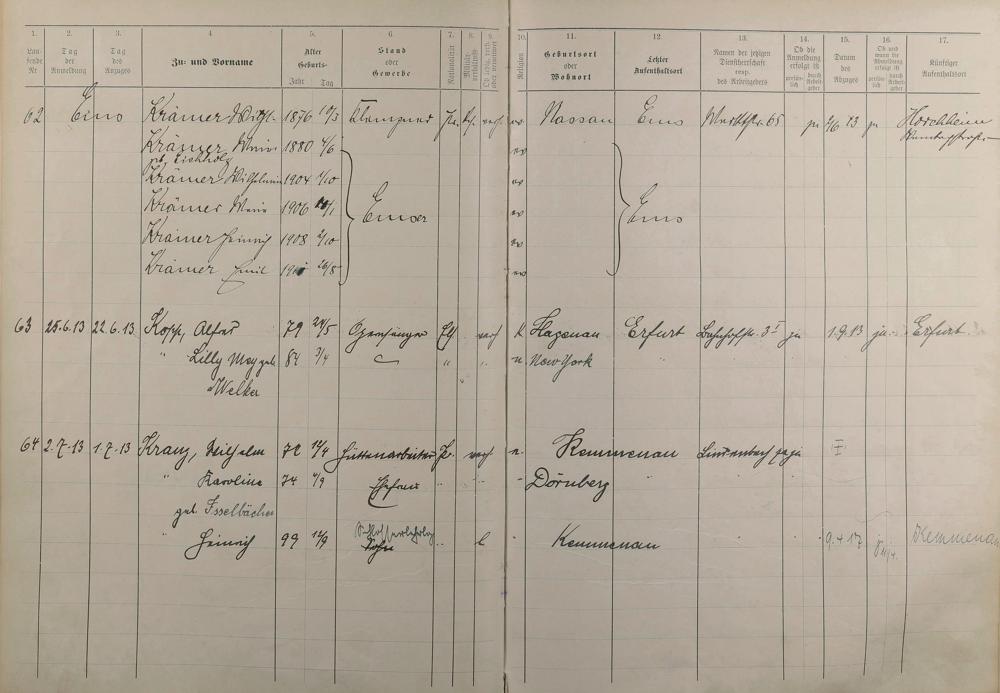 1. 2. 3. 4 5. 6 7. 8. 9. 10. 11. 12. 13. 14. 15. 16. 17.
Lau-
fende
Nr
Tag
der
Anmeldung
Tag
des
Anzuges
Zu- und Vorname
Alter
Geburts-
Jahr Tag
Stand
oder
Gewerbe
Nationalität
Militär-
verhältnis
Ob ledig, verh.
oder verwitwet
Religion
Geburtsort
oder
Wohnort
Letzter
Aufenthaltsort
Namen der jetzigen
Dienstherrschaft
resp.
des Arbeitgebers
Ob die
Anmeldung
erfolgt ist
persön-
lich
durch
Arbeit-
geber
Datum
des
Abzuges
Ob und
wann die
Abmeldung
erfolgt ist
persön-
lich
durch
Arbeit-
geber
Künftiger
Aufenthaltsort
62 Ems Krämer 1876 10/3 Klempner Pr. verh. ev Nassau Ems 65 ja 13 ja Horchheim
Krämer Maria 1880 4/6 ev
geb. Eichholz
Krämer Wilhelmine 1904 1/10 ev
Krämer Maria 1906 Emser ev Ems
Krämer Heinrich 1908 2/10 ev
Krämer Emil 26/8 ev
63 25.6.13 22.6.13 Kopp, Alfred 79 24/5 Opernsänger verh K Hagenau Erfurt Bahnhofstr. 3 I ja 1.9.13 ja Erfurt
" Lilly Mey geb. 84 3/4 " " New York
Welker
64 2.7.13 1.7.13 Kranz, Wilhelm 72 12/4 Hüttenarbeiter Pr. verh Kemmenau Lindenbach ja
" Karoline 74 4/9 Ehefrau " " Dörnberg
geb. Isselbächer
" Heinrich 99 12/9 Schlosserlehrling
Sohn " l " Kemmenau 9.4.17 Kemmenau